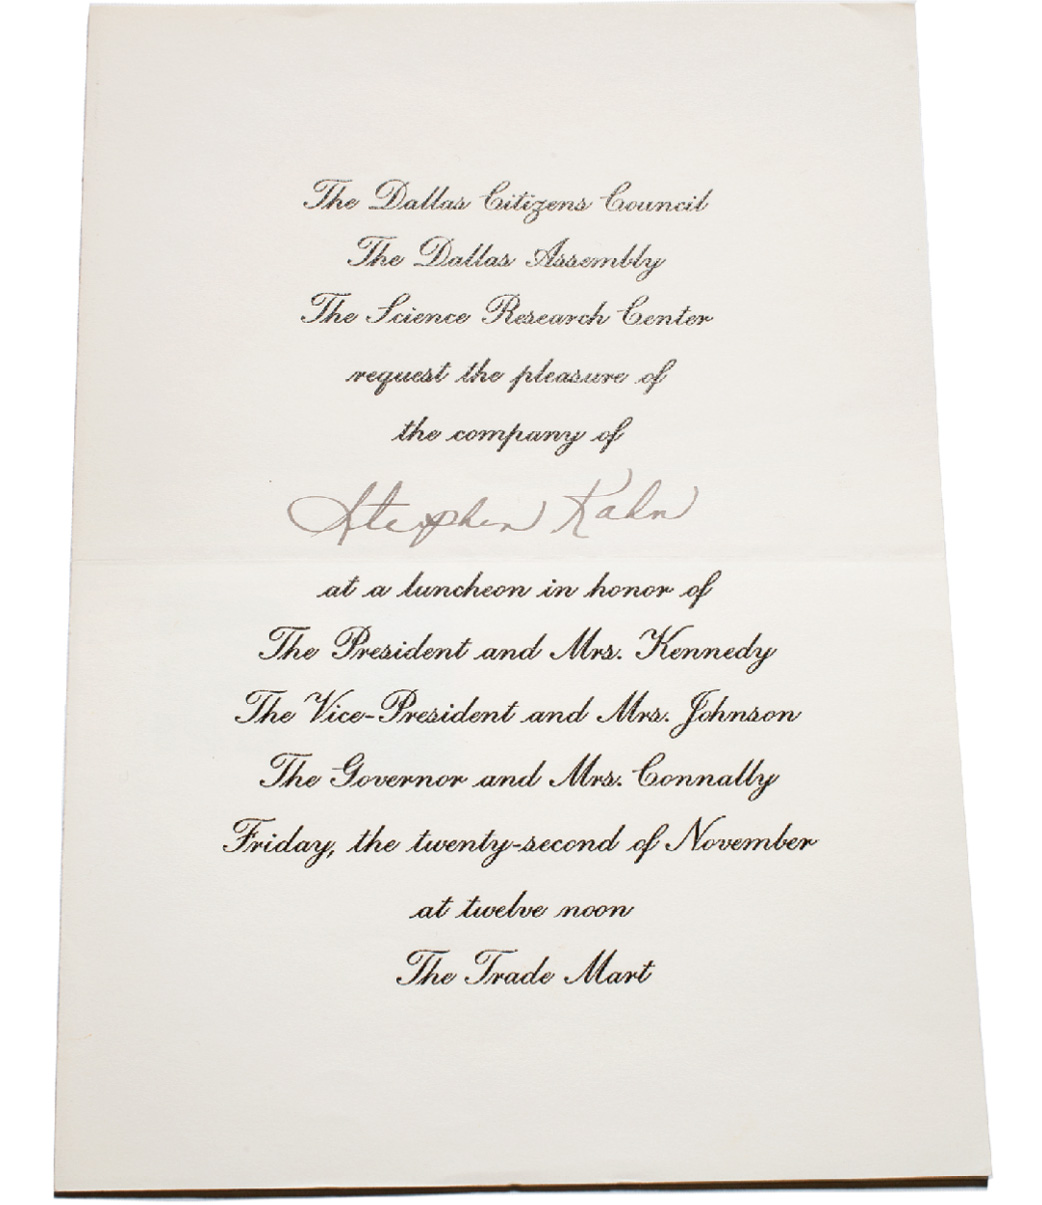 The Dallas Citizens Council
The Dallas Assembly
The Science Research Center
request the pleasure of
the company of
Stephen Kahn
at a luncheon in honor of
The President and Mrs. Kennedy
The Vice-President and Mrs. Johnson
The Governor and Mrs. Connally
Friday, the twenty-second of November
at twelve noon
The Trade Mart